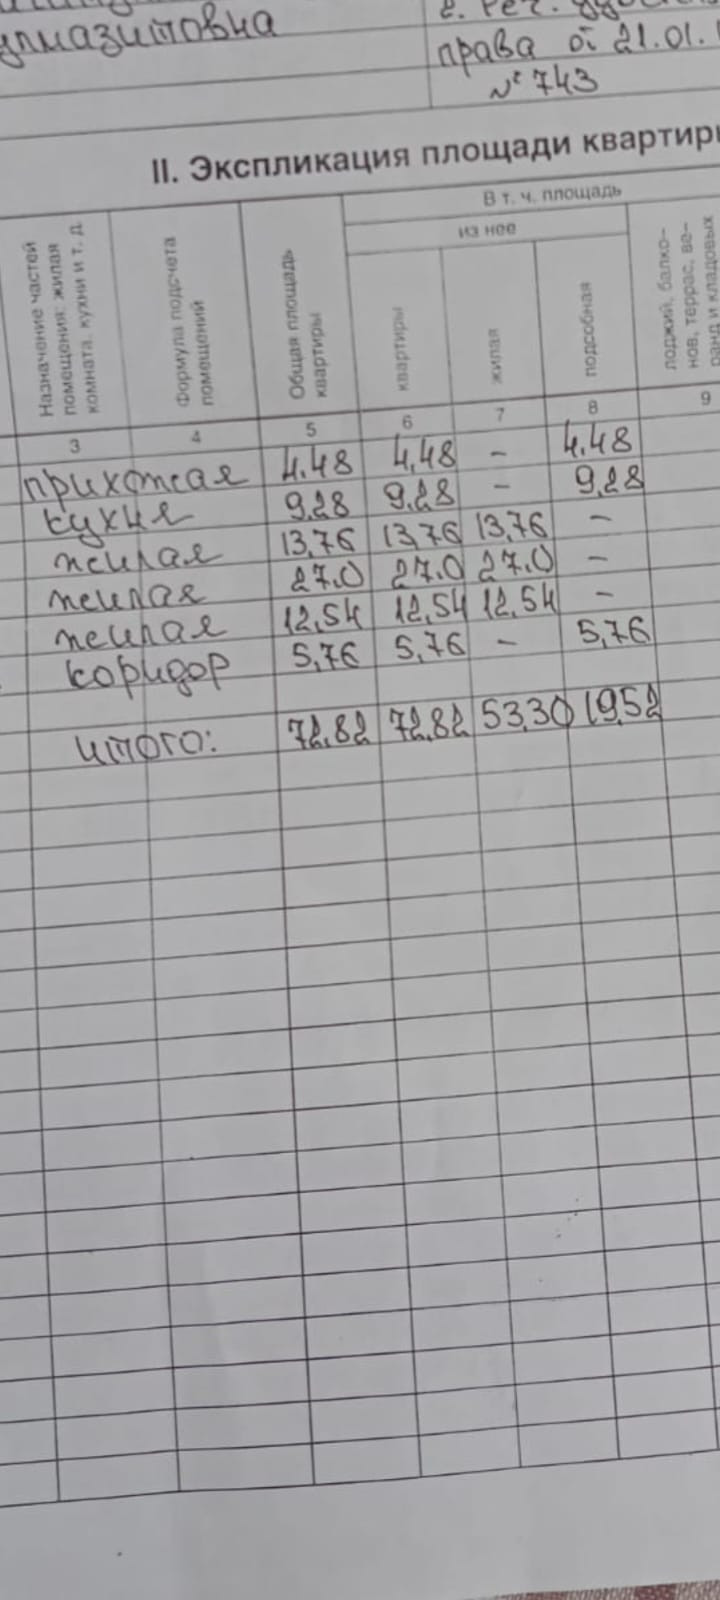 права от 21.01.
№ 743
II. Экспликация площади квартиры
В т. ч. площадь
из нее
Назначение частей помещения: жилая комната, кухни и т. д.
Формула подсчета помещений
Общая площадь квартиры
квартиры
жилая
подсобная
лоджий, балко– нов, террас, ве– ранд и кладовых
3 4 5 6 7 8 9
прихожая 4.48 4,48 – 4.48
кухня 9,28 9,28 – 9,28
жилая 13,76 13,76 13,76 –
жилая 27.0 27.0 27.0 –
жилая 12,54 12,54 12,54 –
коридор 5,76 5,76 – 5,76
итого: 72,82 72,82 53,30 19,52